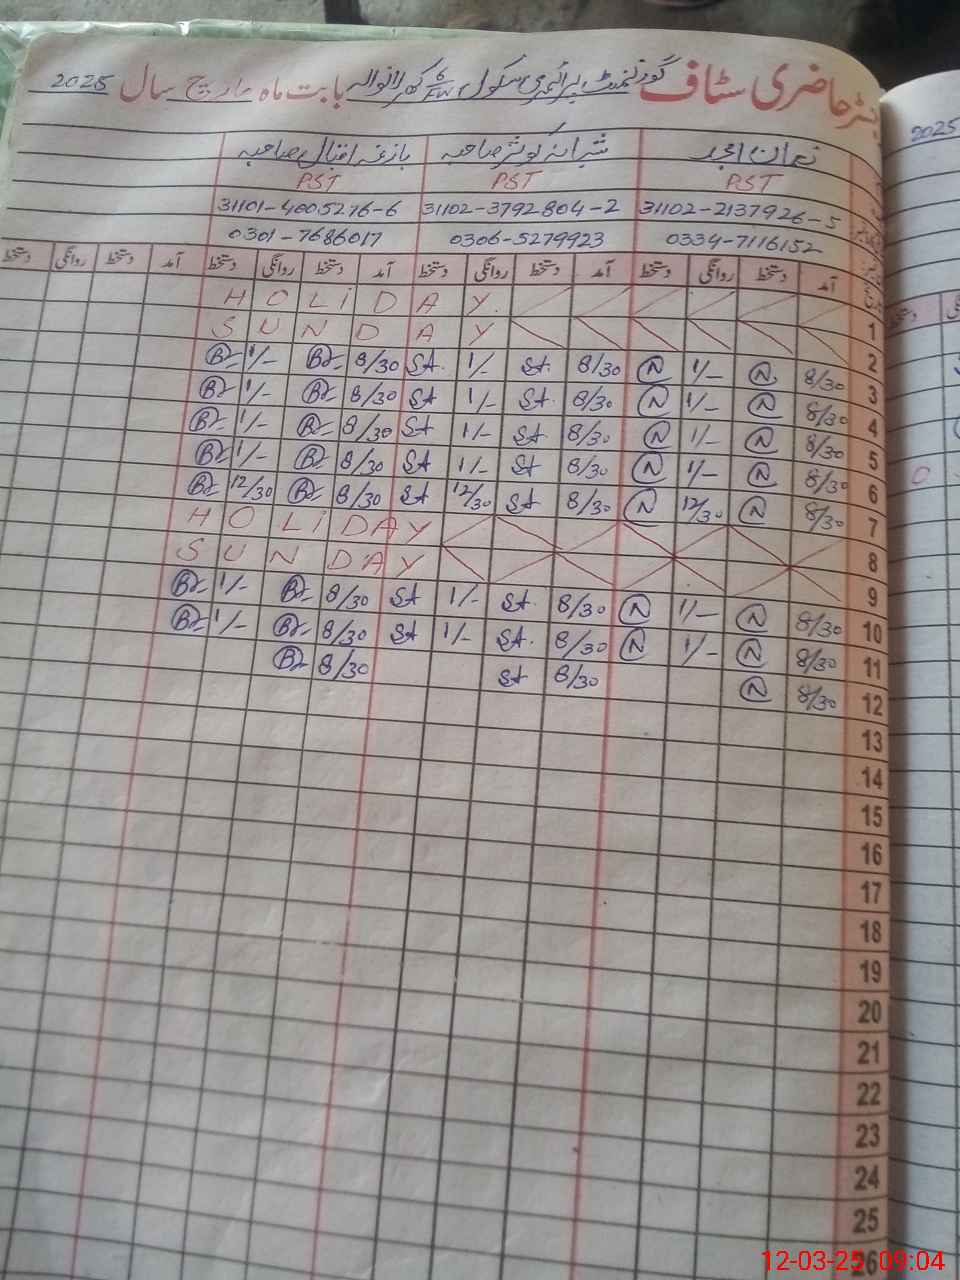 رجسٹر حاضری سٹاف گورنمنٹ پرائمری سکول بابت ماہ مارچ سال 2025
شبانہ کوثر صاحبہ اقبال صاحبہ
PST PST PST
31102-2137926-5 31102-3792804-2 31101-4005276-6
0334-7116152 0306-5279923 0301-7686017
آمد دستخط روانگی دستخط آمد دستخط روانگی دستخط آمد دستخط روانگی دستخط آمد دستخط روانگی دستخط
1 HOLIDAY
2 SUNDAY
3 8/30 N 1/- N 8/30 SA 1/- SA 8/30 1/-
4 8/30 N 1/- N 8/30 SA 1/- SA 8/30 1/-
5 8/30 N 1/- N 8/30 SA 1/- SA 8/30 1/-
6 8/30 N 1/- N 8/30 SA 1/- SA 8/30 1/-
7 8/30 N 12/30 N 8/30 SA 12/30 SA 8/30 12/30
8 HOLIDAY
9 SUNDAY
10 8/30 N 1/- N 8/30 SA 1/- SA 8/30 1/-
11 8/30 N 1/- N 8/30 SA 1/- SA 8/30 1/-
12 8/30 N 8/30 SA 8/30
13
14
15
16
17
18
19
20
21
22
23
24
25
26
2025
12-03-25 09:04